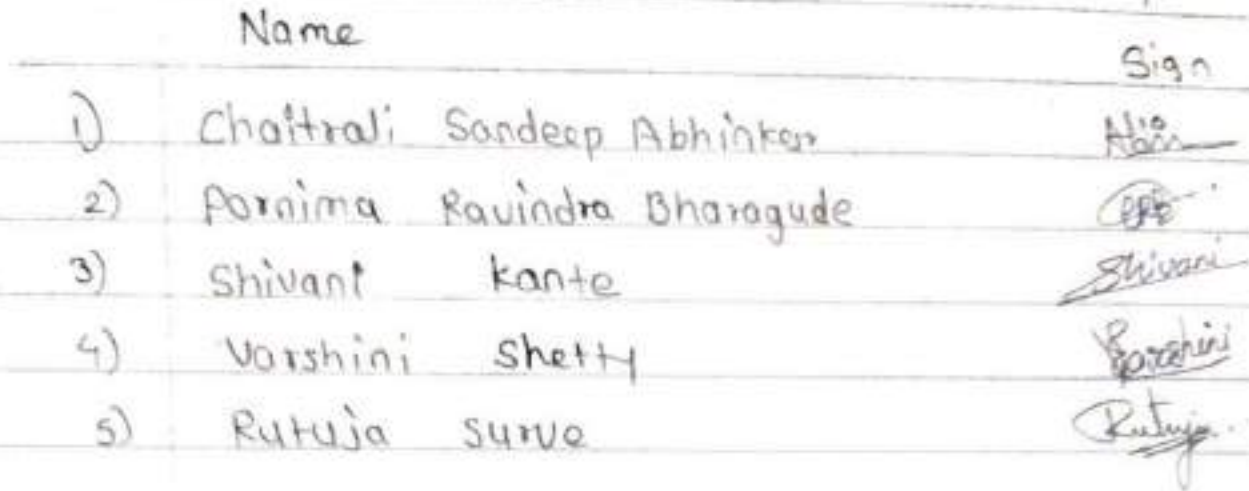 Name Sign
1) Chaitrali Sandeep Abhinkar
2) Pornima Ravindra Bharagude
3) Shivani Kante Shivani
4) Varshini Shetty Varshini
5) Rutuja Surve Rutuja